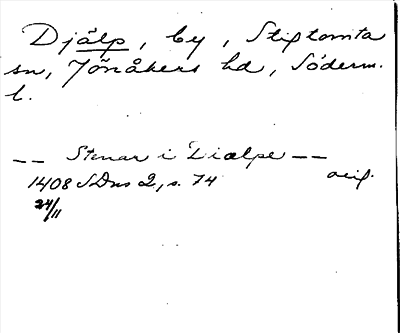 Djälp, by, Stiftomta
sn, Jönåkers hd, Söderm.
l.
-- Stenar i Diælpe --
1408 SDns 2, s. 74 orig.
24/11